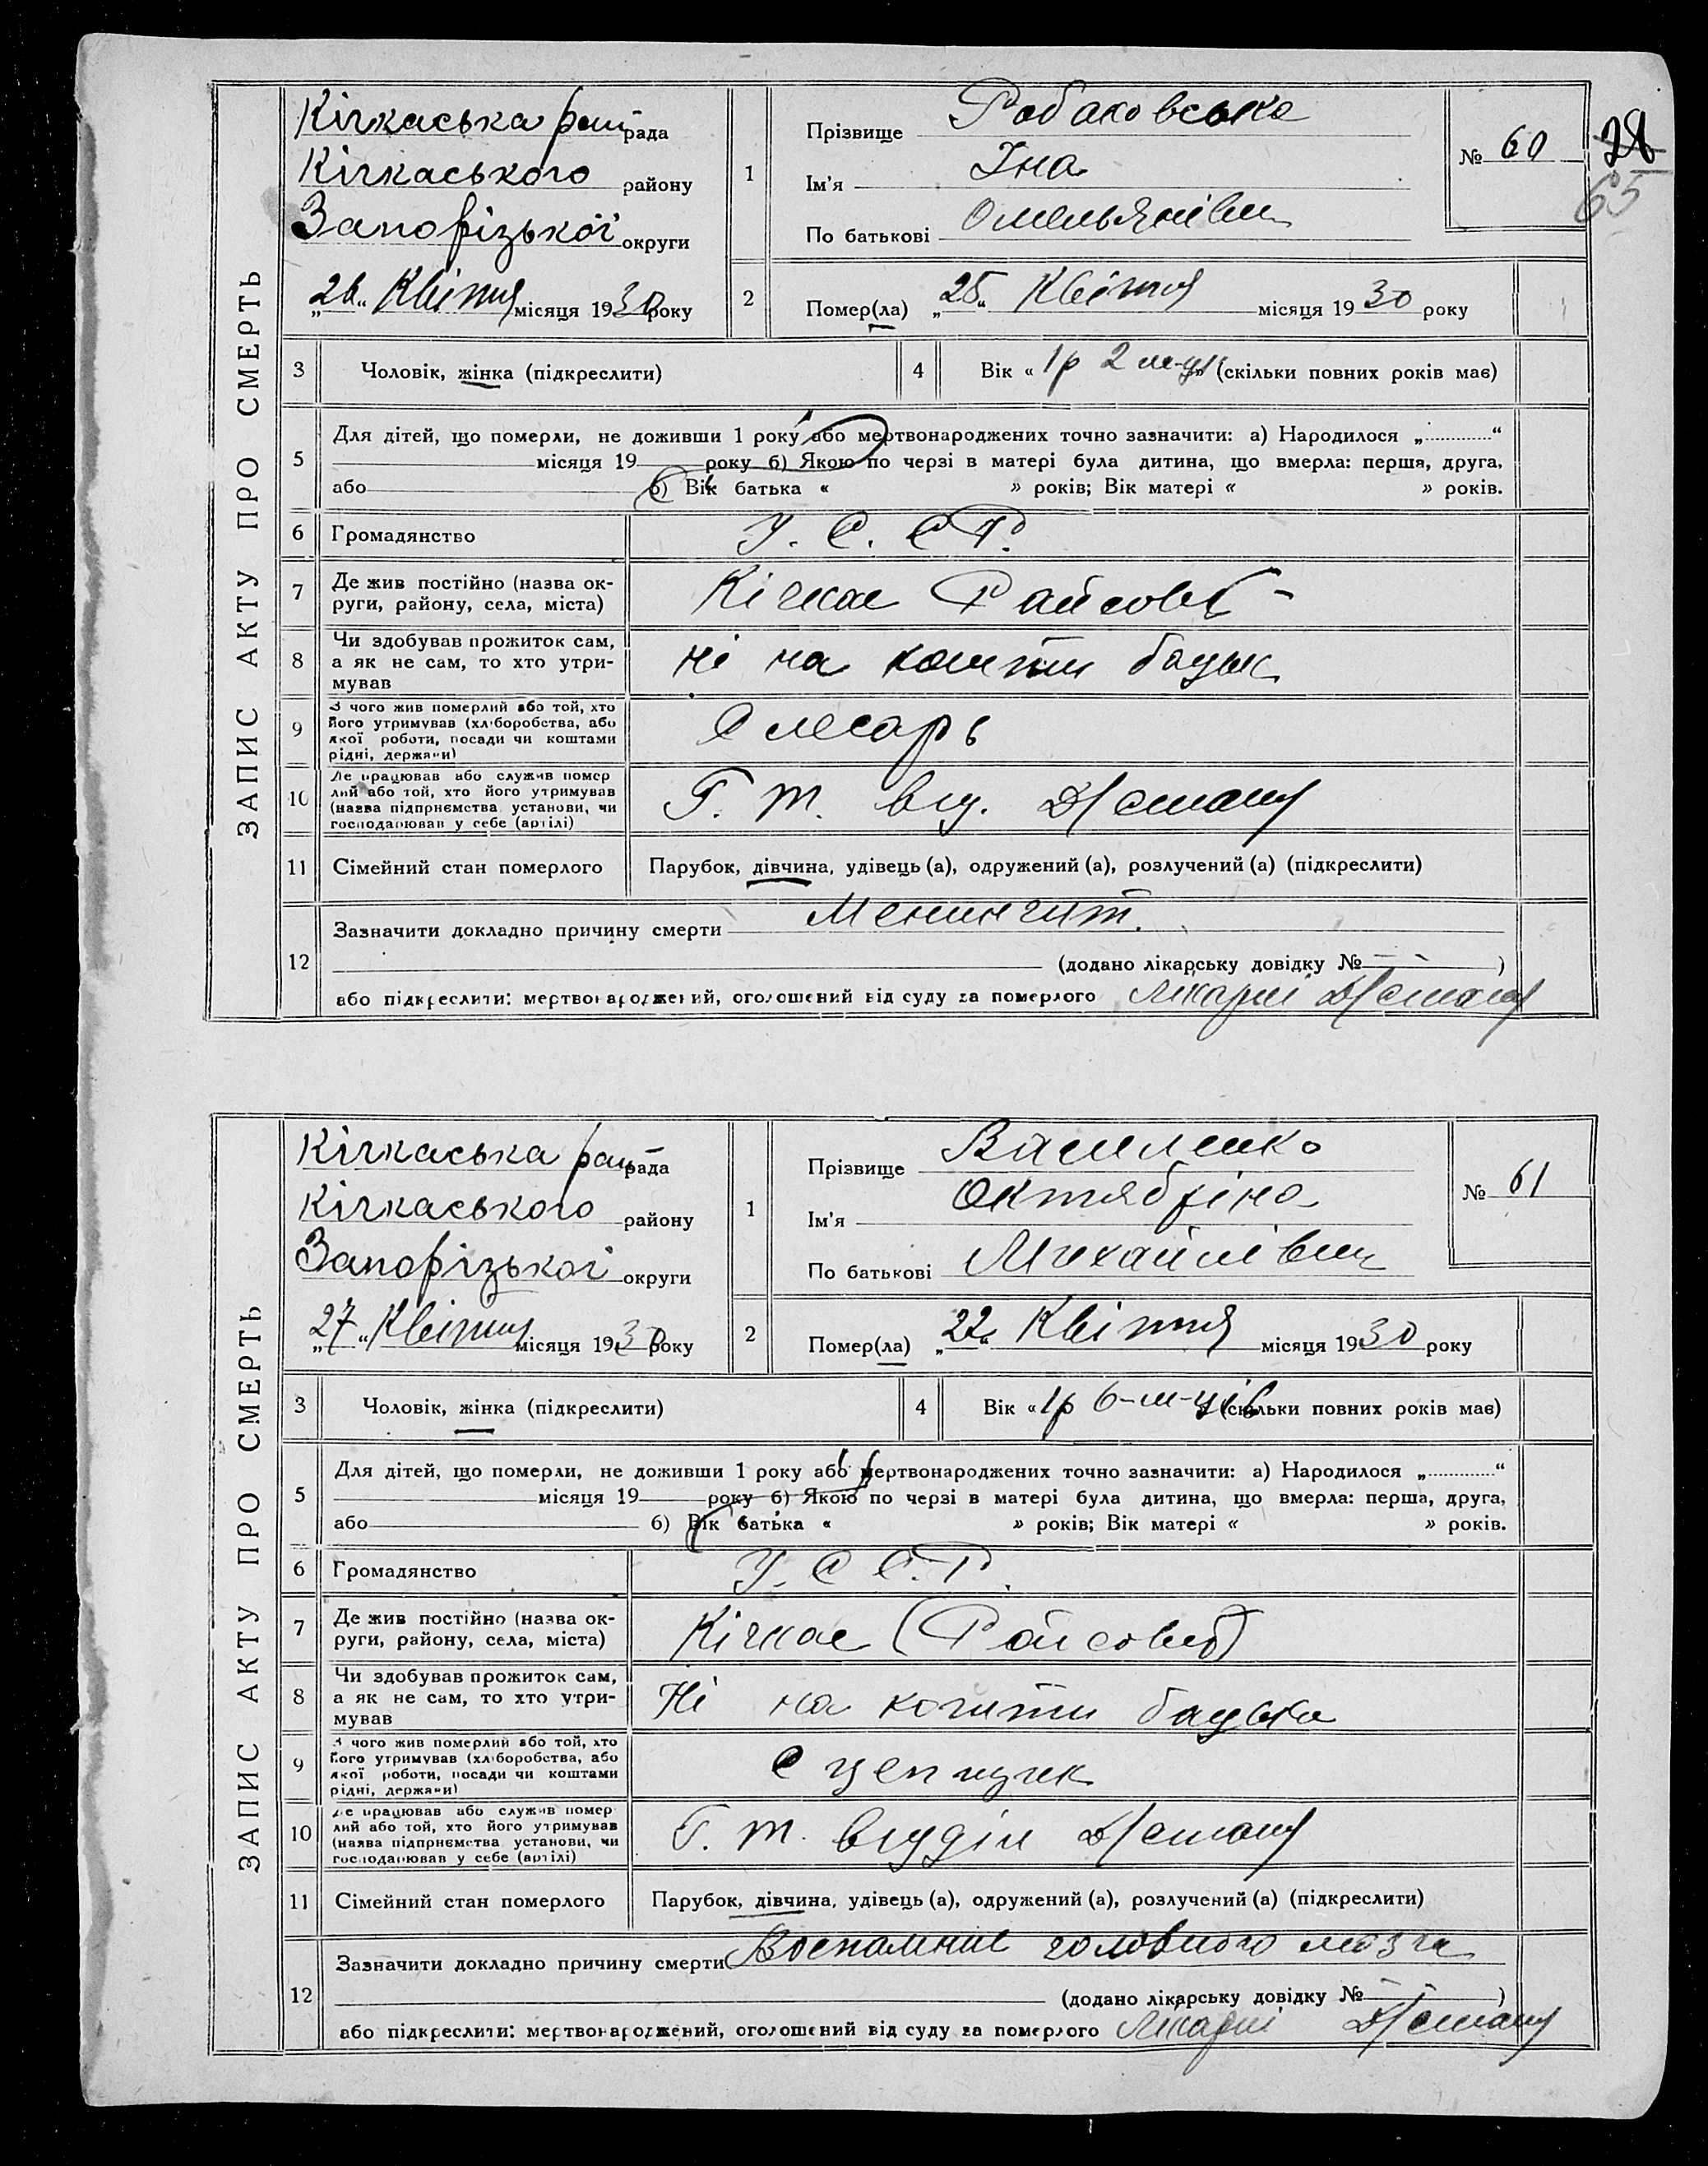 ЗАПИС АКТУ ПРО СМЕРТЬ
Кічкаська рай рада
Кічкаського району
Запорізької округи
„26“ Квітня місяця 1930 року
1
Прізвище Робаковська
Ім'я Іна
По батькові Омельянівна
№ 60
28
65
2
Помер(ла) „25“ Квітня місяця 1930 року
3 Чоловік, жінка (підкреслити)
4 Вік «1р 2 м-ця» (скільки повних років має)
5
Для дітей, що померли, не доживши 1 року або мертвонароджених точно зазначити: а) Народилося „ “
місяця 19 року б) Якою по черзі в матері була дитина, що вмерла: перша, друга,
або б) Вік батька « » років; Вік матері « » років.
6 Громадянство У. С. С. Р.
7 Де жив постійно (назва ок-
руги, району, села, міста)
Кічкас
8 Чи здобував прожиток сам,
а як не сам, то хто утри-
мував
ні на кошти батьк
9 З чого жив померлий або той, хто
його утримував (хліборобства, або
якої роботи, посади чи коштами
рідні, держави)
Слесарь
10 Де працював або служив помер
лий або той, хто його утримував
(назва підпрнємства установи, чи
господарював у себе (артілі)
Г. т. від.
11 Сімейний стан померлого Парубок, дівчина, удівець (а), одружений (а), розлучений (а) (підкреслити)
12 Зазначити докладно причину смерти Менингит.
(додано лікарську довідку № — — )
або підкреслити: мертвонароджений, оголошений від суду за померлого Лікарні
ЗАПИС АКТУ ПРО СМЕРТЬ
Кічкаська рай рада
Кічкаського району
Запорізької округи
„27“ Квітня місяця 1930 року
1
Прізвище Василенко
Ім'я Октябріна
По батькові Михайлівна
№ 61
2
Помер(ла) „22“ Квітня місяця 1930 року
3 Чоловік, жінка (підкреслити)
4 Вік «1р 6-м-ців (скільки повних років має)
5
Для дітей, що померли, не доживши 1 року або мертвонароджених точно зазначити: а) Народилося „ “
місяця 19 року б) Якою по черзі в матері була дитина, що вмерла: перша, друга,
або б) Вік батька « » років; Вік матері « » років.
6 Громадянство У. С С. Р.
7 Де жив постійно (назва ок-
руги, району, села, міста)
Кічкас
8 Чи здобував прожиток сам,
а як не сам, то хто утри-
мував
Ні на кошти батька
9 З чого жив померлий або той, хто
його утримував (хліборобства, або
якої роботи, посади чи коштами
рідні, держави)
Сцепщик
10 Де працював або служив помер
лий або той, хто його утримував
(назва підпрнємства установи, чи
господарював у себе (артілі)
Г. т. відділ
11 Сімейний стан померлого Парубок, дівчина, удівець (а), одружений (а), розлучений (а) (підкреслити)
12 Зазначити докладно причину смерти Воспаление головного мозга
(додано лікарську довідку № — — )
або підкреслити: мертвонароджений, оголошений від суду за померлого Лікарні